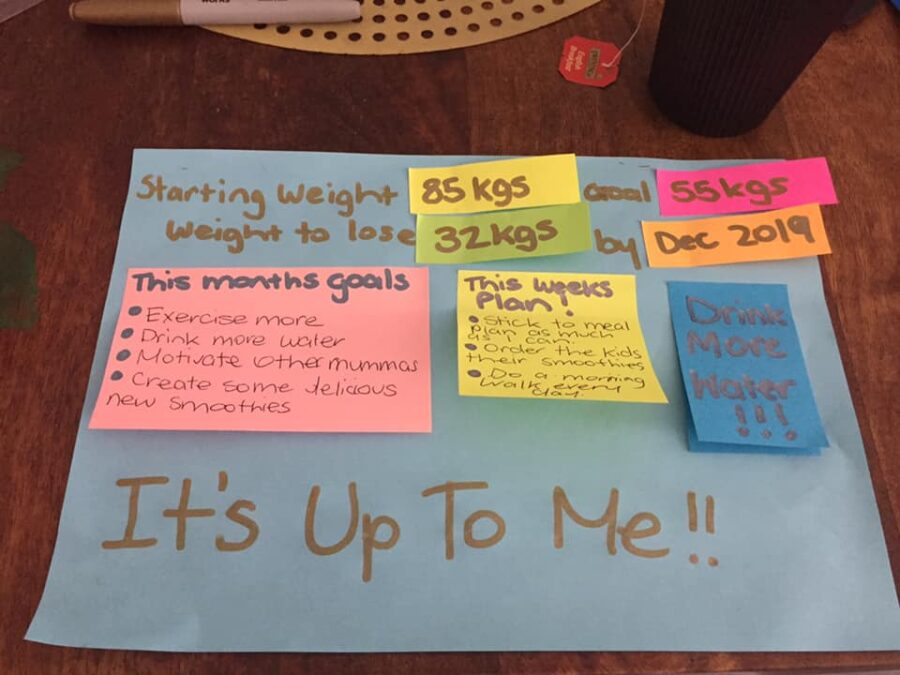 WORKS
English Breakfast
Starting Weight 85 kgs Goal 55 kgs
Weight to lose 32 kgs by Dec 2019
This months goals
• Exercise more
• Drink more water
• Motivate other mummas
• Create some delicious
new smoothies
This weeks
Plan!
• Stick to meal
plan as much
as I can.
• Order the kids
their smoothies
• Do a morning
walk every
day.
Drink
More
Water
!!!
It's Up To Me!!